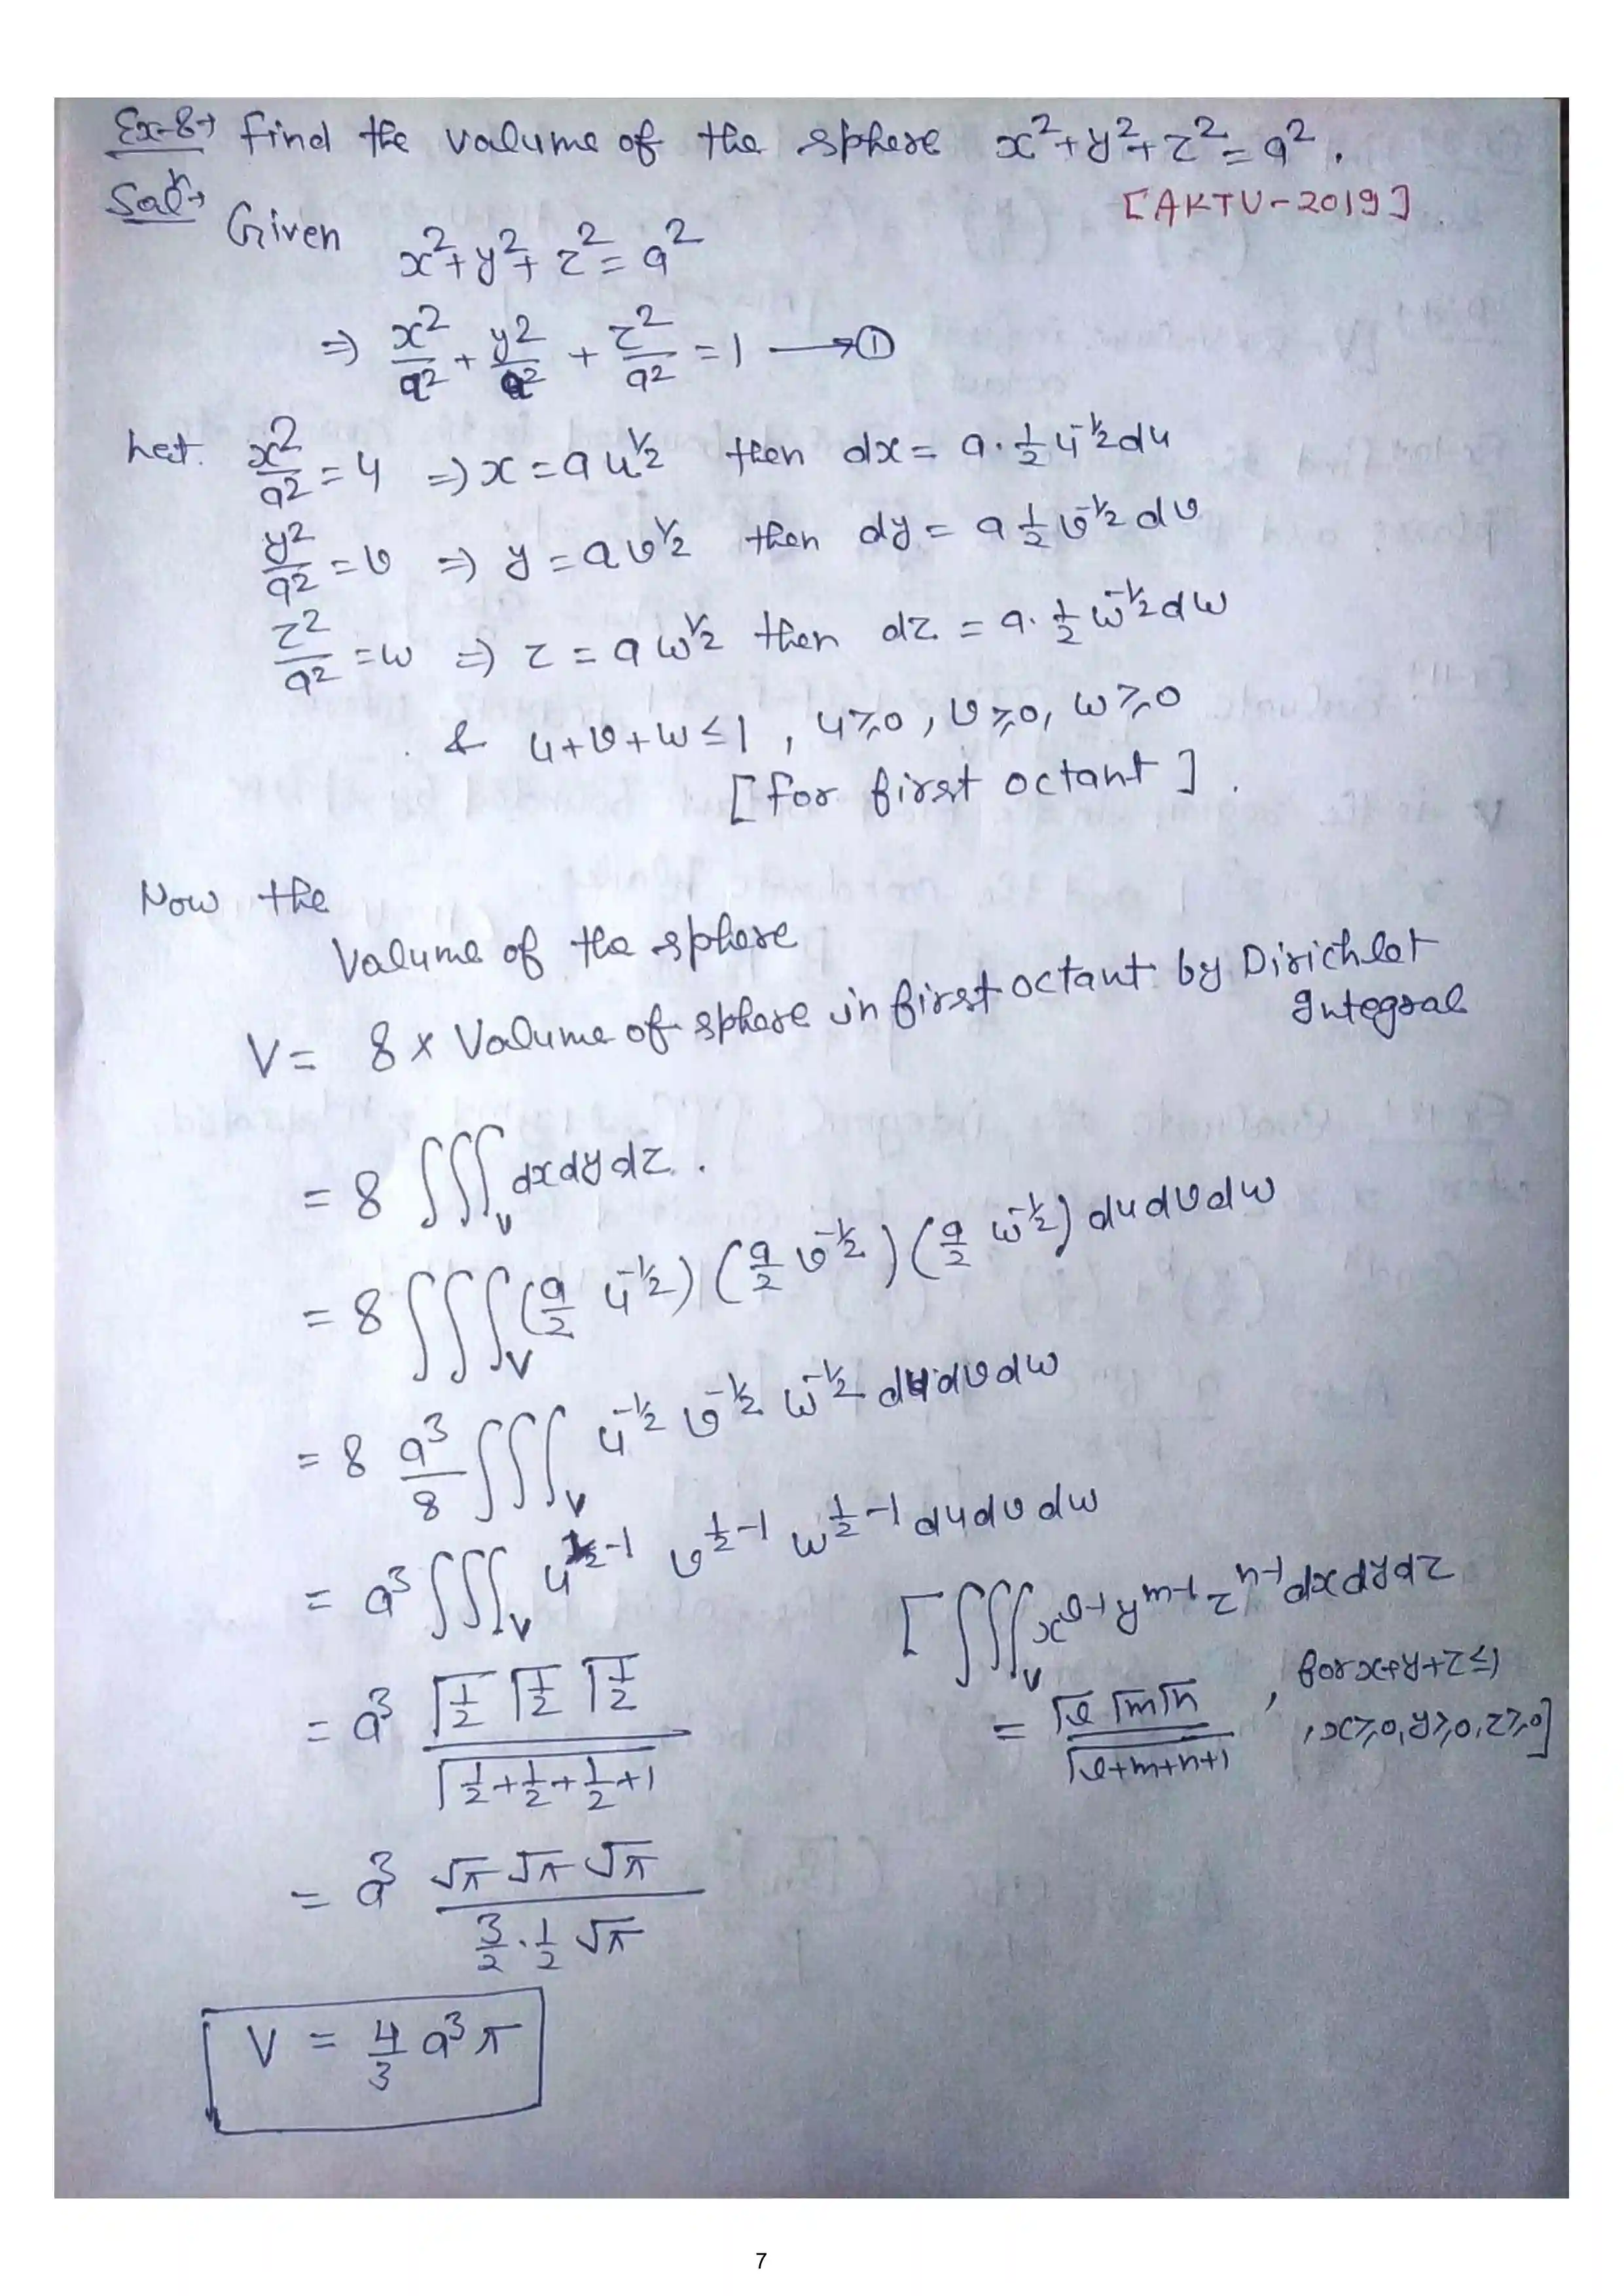 Ex-8→ Find the volume of the sphere x²+y²+z²=a².
[AKTU-2019]
Solⁿ→ Given
x²+y²+z²=a²
⇒ x²/a² + y²/a² + z²/a² = 1 → ①
Let. x²/a² = u ⇒ x = a u^½ then dx = a·½ u^-½ du
y²/a² = v ⇒ y = a v^½ then dy = a ½ v^-½ dv
z²/a² = w ⇒ z = a w^½ then dz = a·½ w^-½ dw
& u+v+w ≤ 1, u≥0, v≥0, w≥0
[for first octant].
Now the
Volume of the sphere
V = 8 × Volume of sphere in first octant by Dirichlet
Integral
= 8 ∭_V dxdydz.
= 8 ∭_V (a/2 u^-½) (a/2 v^-½) (a/2 w^-½) dudvdw
= 8 a³/8 ∭_V u^-½ v^-½ w^-½ dudvdw
= a³ ∭_V u^(½-1) v^(½-1) w^(½-1) dudvdw
[∭_V x^(l-1) y^(m-1) z^(n-1) dxdydz
= Γl Γm Γn / Γl+m+n+1, for x+y+z≤1
, x≥0, y≥0, z≥0]
= a³ Γ½ Γ½ Γ½ / Γ½+½+½+1
= a³ √π √π √π / 3/2·½ √π
V = 4/3 a³π
7